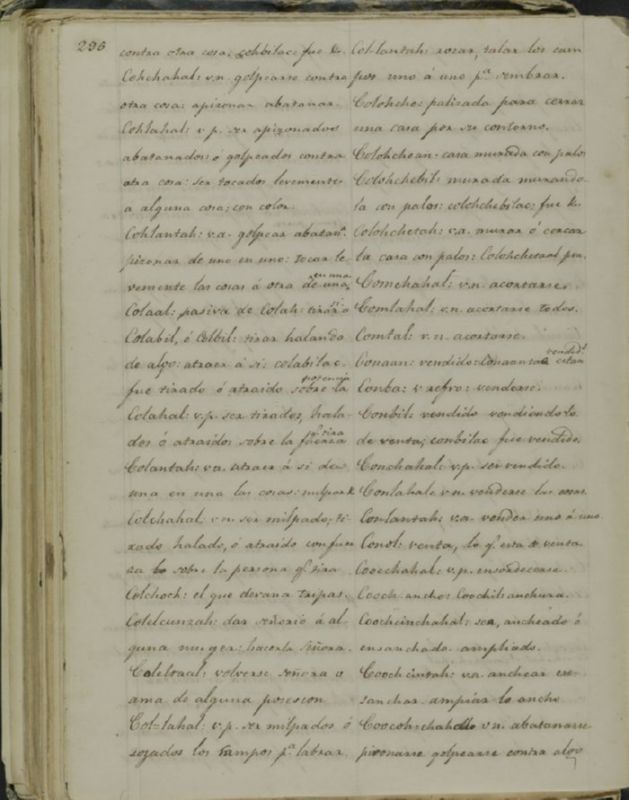 296
contra otra cosa: cohbilac: fue &.
Cohchahal: v.n. golpearse contra
otra cosa: apizonar abatanar.
Cohlahal: v.p. ser apizonados
abatanados: o golpeados contra
otra cosa: ser tocados levemente
a alguna cosa; con color.
Cohlantah: v.a. golpear abatan.
pizonar de uno en uno: tocar le-
vemente las cosas á otra de una
en una
Colaal: pasiva de Colah: tirar a
si
Colabil, ó Colbil: tirar halando
de algo: atraer á si: colabilac.
fue tirado ó atraido sobre la
Colahal: v.p. ser tirados, hala-
dos ó atraidos sobre la fuerza
q.e tira
Colantah: v.a. atraer á si de
una en una las cosas:
Colchahal v.n. ser milpado; ti-
rado halado, ó atraido con fuer
za lo sobre la persona q.e tira
Colchoch: el que devana tripas.
Colelcunzah: dar señorio á al-
guna muger: hacerla Señora.
Colelxaal: volverse señora o
ama de alguna posesion
Col=lahal: v.p. ser milpados ó
rozados los campos p.a labrar.
Col-lantah: rozar, talar los cam
pos uno á uno p.a sembrar.
Colohche: palizada para cerrar
una casa por su contorno.
Colohchean: casa murada con palos
Colohchebil: murada murando
la con palos: colohchebilac: fue &.
Colohchetah: v.a. murar ó cercar
la casa con palos: Colohchetaal pa.
Comchahal: v.n. acortarse.
Comlahal: v.n. acortarse todos.
Comtal: v.n. acortarse.
Conaan: vendido: Conaanac estar
vendid.o
Conba: v. refro: venderse.
Conbil: vendido vendiendolo
de venta; conbilac fue vendido.
Conchahal: v.p. ser vendido.
Conlahal: v.n. venderse las cosas.
Conlantah: v.a. vender uno á uno
Conol: venta, lo q.e esta de venta
Coocchahal: v.p. ensordecerse.
Cooch ancho: Coochil: anchura.
Coochcinchahal: ser, ancheado ó
ensanchado ampliado.
Coochcintah: v.a. anchear en-
sanchar ampiar lo ancho
Coocohchahal v.n. abatanarse
pizonarse golpearse contra algo